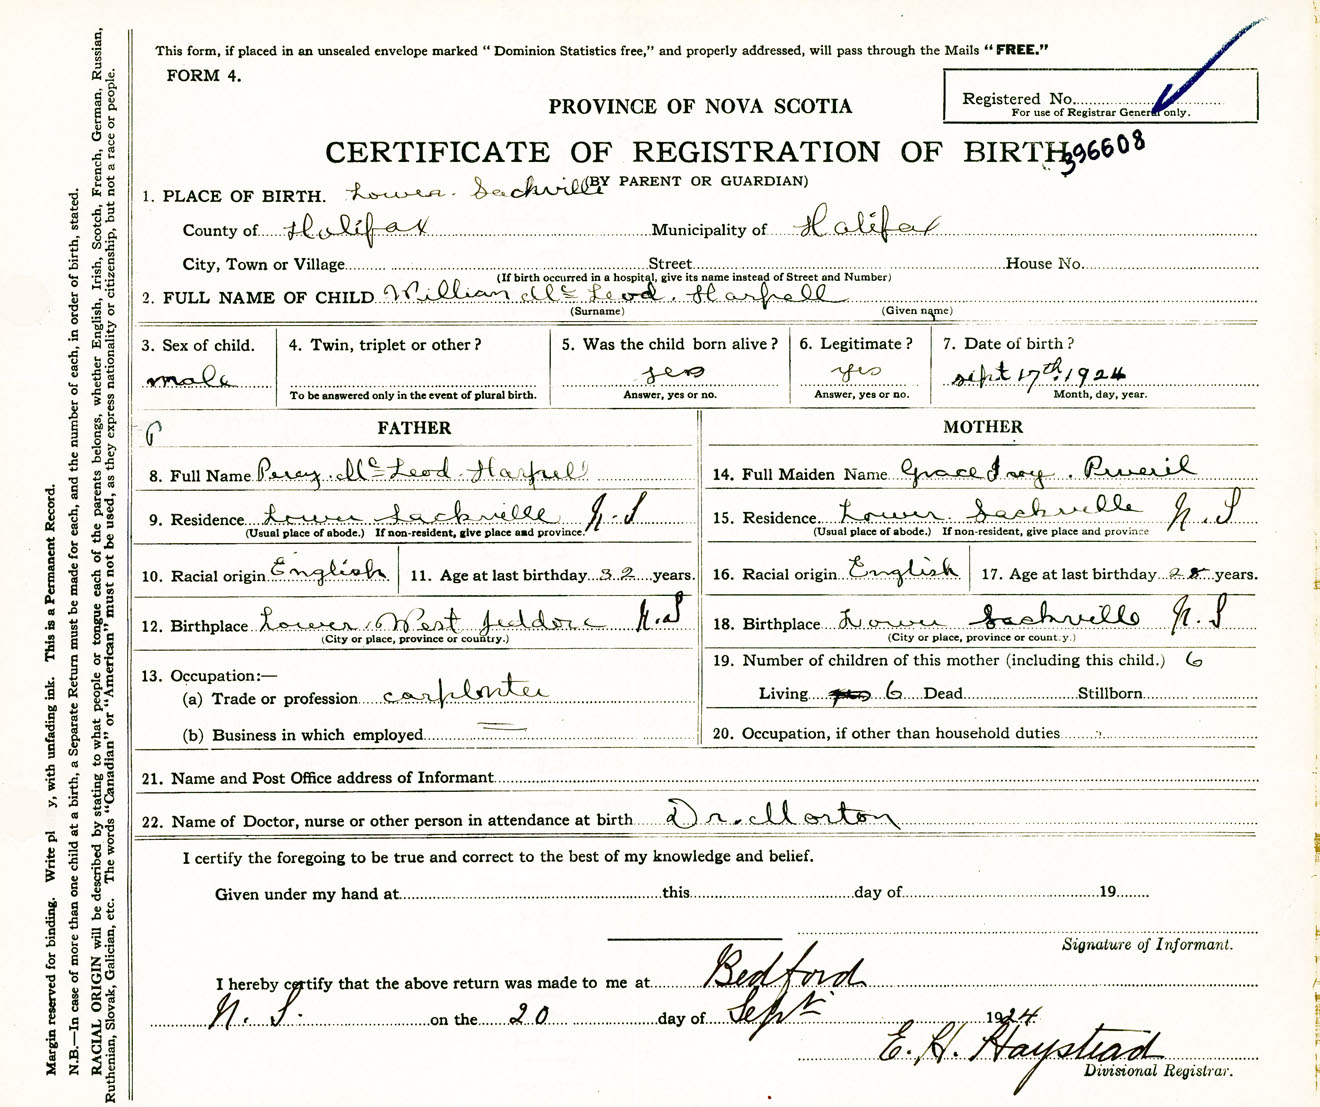 This form, if placed in an unsealed envelope marked “ Dominion Statistics free,” and properly addressed, will pass through the Mails “ FREE.”
FORM 4.
Registered No.
For use of Registrar General only.
PROVINCE OF NOVA SCOTIA
CERTIFICATE OF REGISTRATION OF BIRTH
396608
(BY PARENT OR GUARDIAN)
1. PLACE OF BIRTH. Lower Sackville
County of Halifax Municipality of Halifax
City, Town or Village Street House No.
(If birth occurred in a hospital, give its name instead of Street and Number)
2. FULL NAME OF CHILD William Mc Leod Harpell
(Surname) (Given name)
3. Sex of child. 4. Twin, triplet or other? 5. Was the child born alive? 6. Legitimate? 7. Date of birth?
male yes yes sept 17th 1924
To be answered only in the event of plural birth. Answer, yes or no. Answer, yes or no. Month, day, year.
FATHER MOTHER
8. Full Name Percy Mc Leod Harpell 14. Full Maiden Name Grace Ivoy
9. Residence Lower Sackville N.S 15. Residence Lower Sackville N.S
(Usual place of abode.) If non-resident, give place and province. (Usual place of abode.) If non-resident, give place and province
10. Racial origin English 11. Age at last birthday 32 years. 16. Racial origin English 17. Age at last birthday 28 years.
12. Birthplace Lower West Jeddore N.S 18. Birthplace Lower Sackville N.S
(City or place, province or country.) (City or place, province or country.)
13. Occupation:— 19. Number of children of this mother (including this child.) 6
(a) Trade or profession carpenter Living 6 Dead Stillborn
(b) Business in which employed 20. Occupation, if other than household duties
21. Name and Post Office address of Informant
22. Name of Doctor, nurse or other person in attendance at birth Dr. Morton
I certify the foregoing to be true and correct to the best of my knowledge and belief.
Given under my hand at this day of 19
Signature of Informant.
I hereby certify that the above return was made to me at Bedford
N. S. on the 20 day of Sept 1924
E. H. Haystead
Divisional Registrar.
Margin reserved for binding. Write pl y, with unfading ink. This is a Permanent Record.
N.B.—In case of more than one child at a birth, a Separate Return must be made for each, and the number of each, in order of birth, stated.
RACIAL ORIGIN will be described by stating to what people or tongue each of the parents belongs, whether English, Irish, Scotch, French, German, Russian,
Ruthenian, Slovak, Galician, etc. The words “Canadian” or “American” must not be used, as they express nationality or citizenship, but not a race or people.